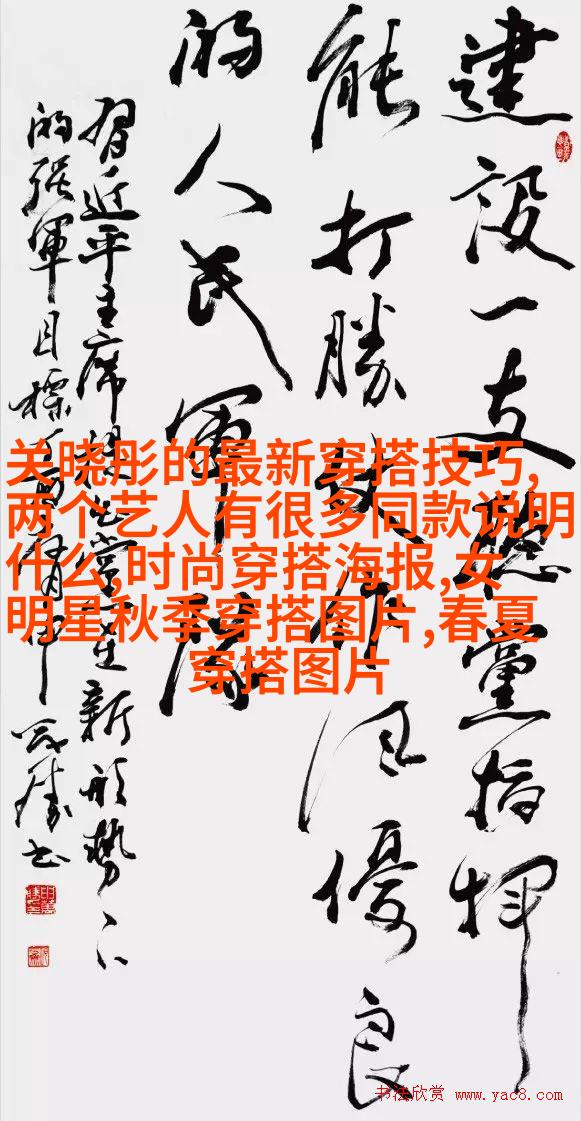 建設一支聽黨指揮
能打勝仗作風優良
的人民軍隊
習近平主席提出黨在新形勢下
的强軍目標
关晓彤的最新穿搭技巧,
两个艺人有很多同款说明
什么,时尚穿搭海报,女
明星秋季穿搭图片,春夏
穿搭图片
书法欣赏 www.yac8.com